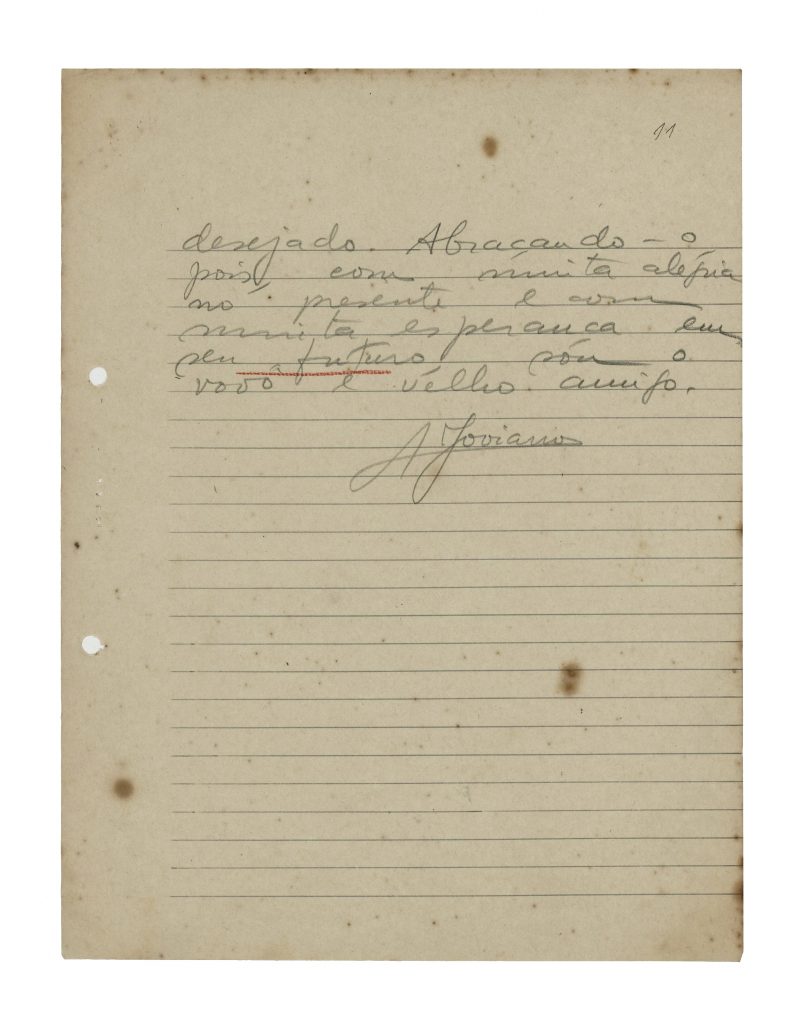 11
desejado. Abraçando-o
pois, com muita alegria
no presente e com
muita esperança em
seu futuro, sou o
vovô e velho amigo.
A Joviano